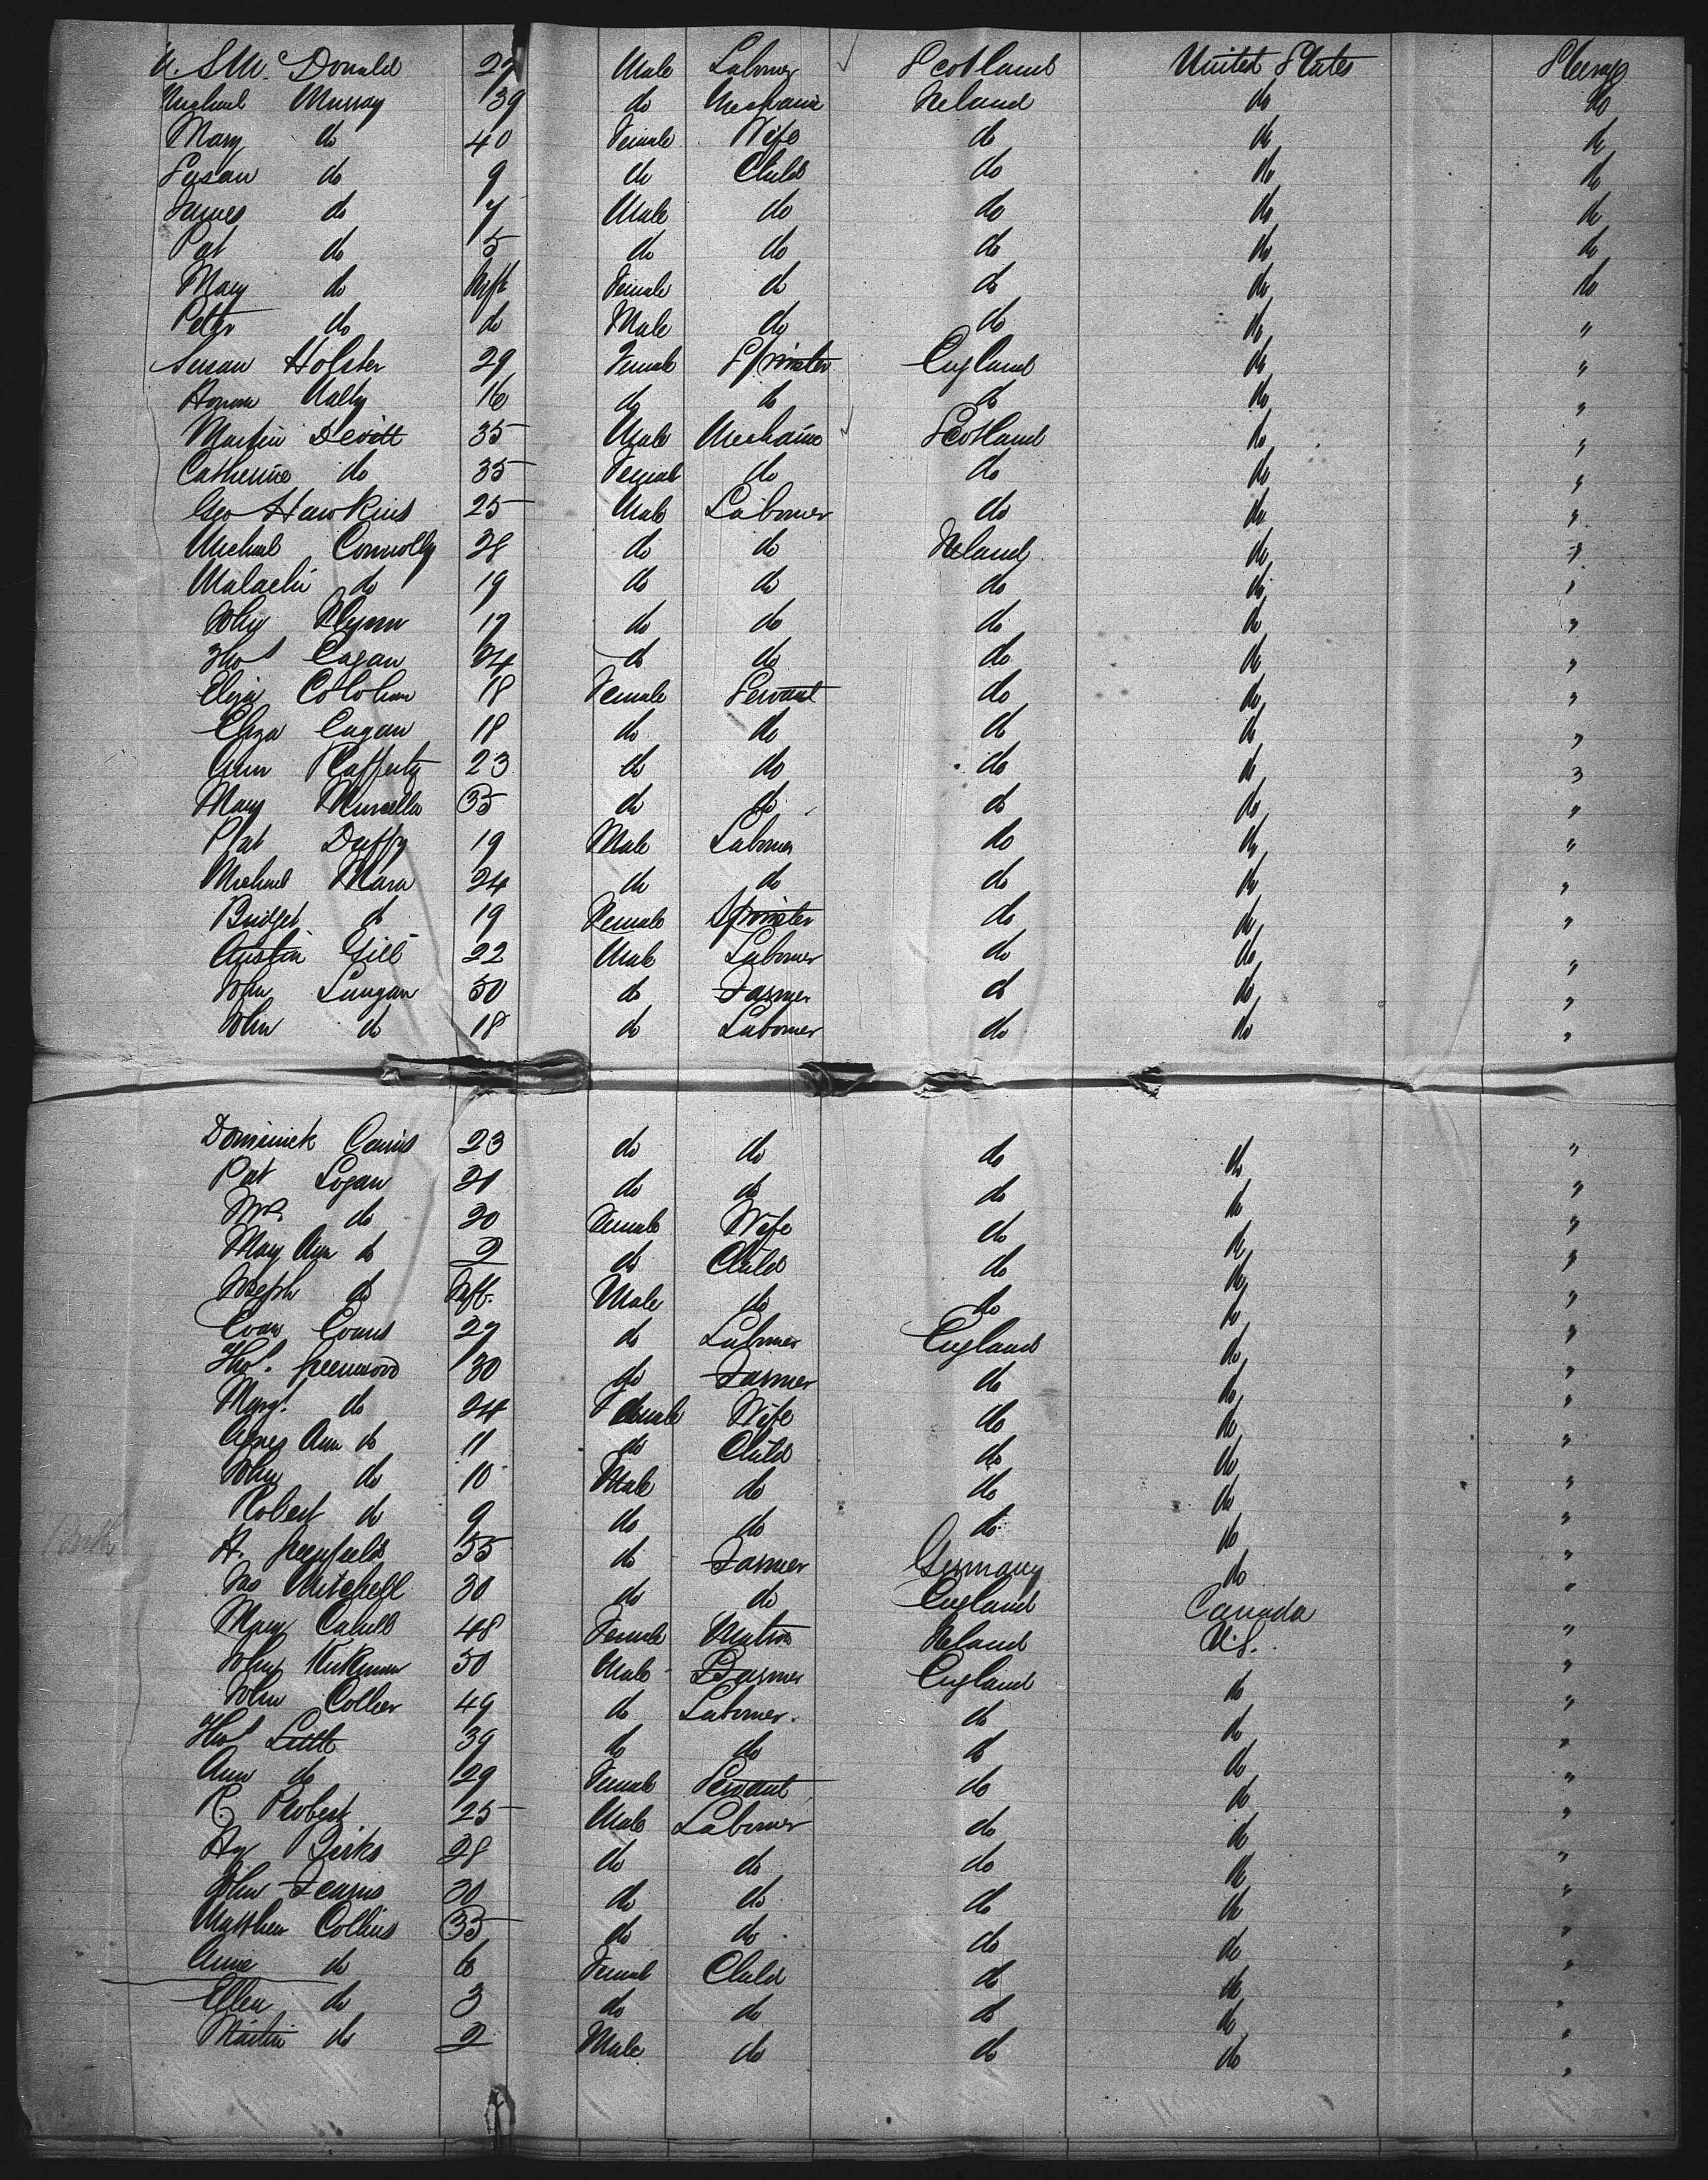 Mc Donald 27 Male Laborer Scotland United States Steerage
Michael Murray 39 do Mechanic Ireland do do
Mary do 40 Female Wife do do do
Susan do 9 do Child do do do
James do 7 Male do do do do
Pat do 5 do do do do do
Mary do Inft Female do do do do
Peter do do Male do do do "
Susan Holster 29 Female Spinster England do "
Honora Nally 16 do do do do "
Martin Devitt 35 Male Mechanic Scotland do "
Catherine do 35 Female do do do "
Geo Hawkins 25 Male Laborer do do "
Michael Connolly 28 do do Ireland do "
Malachi do 19 do do do do "
John Flynn 19 do do do do "
Thos Eagan 24 do do do do "
Eliza Colohan 18 Female Servant do do "
Eliza Eagan 18 do do do do "
Ann Rafferty 23 do do do do "
Mary 35 do do do do "
Pat Duffy 19 Male Laborer do do "
Michael Mara 24 do do do do "
Bridget do 19 Female Spinster do do "
Austin Gill 22 Male Laborer do do "
John Langan 50 do Farmer do do "
John do 18 do Laborer do do "
Dominick 23 do do do do "
Pat Logan 21 do do do do "
Mrs. do 20 Female Wife do do "
Mary Ann do 2 do Child do do "
Joseph do Inft. Male do do do "
Evan Evans 27 do Laborer England do "
Thos. Greenwood 30 do Farmer do do "
Margt. do 24 Female Wife do do "
Agnes Ann do 11 do Child do do "
John do 10 Male do do do "
Robert do 9 do do do do "
H. Greenfield 55 do Farmer Germany do "
Jno Mitchell 30 do do England Canada "
Mary Cahill 48 Female Matron Ireland U.S. "
John Kirkman 50 Male Farmer England do "
John Collier 49 do Laborer. do do "
Thos Little 39 do do do do "
Ann do 29 Female Servant do do "
R. Probert 25 Male Laborer do do "
Hy Birks 28 do do do do "
John Fearns 30 do do do do "
Matthew Collins 35 do do do do "
Anne do 6 Female Child do do "
Ellen do 3 do do do do "
Martin do 2 Male do do do "